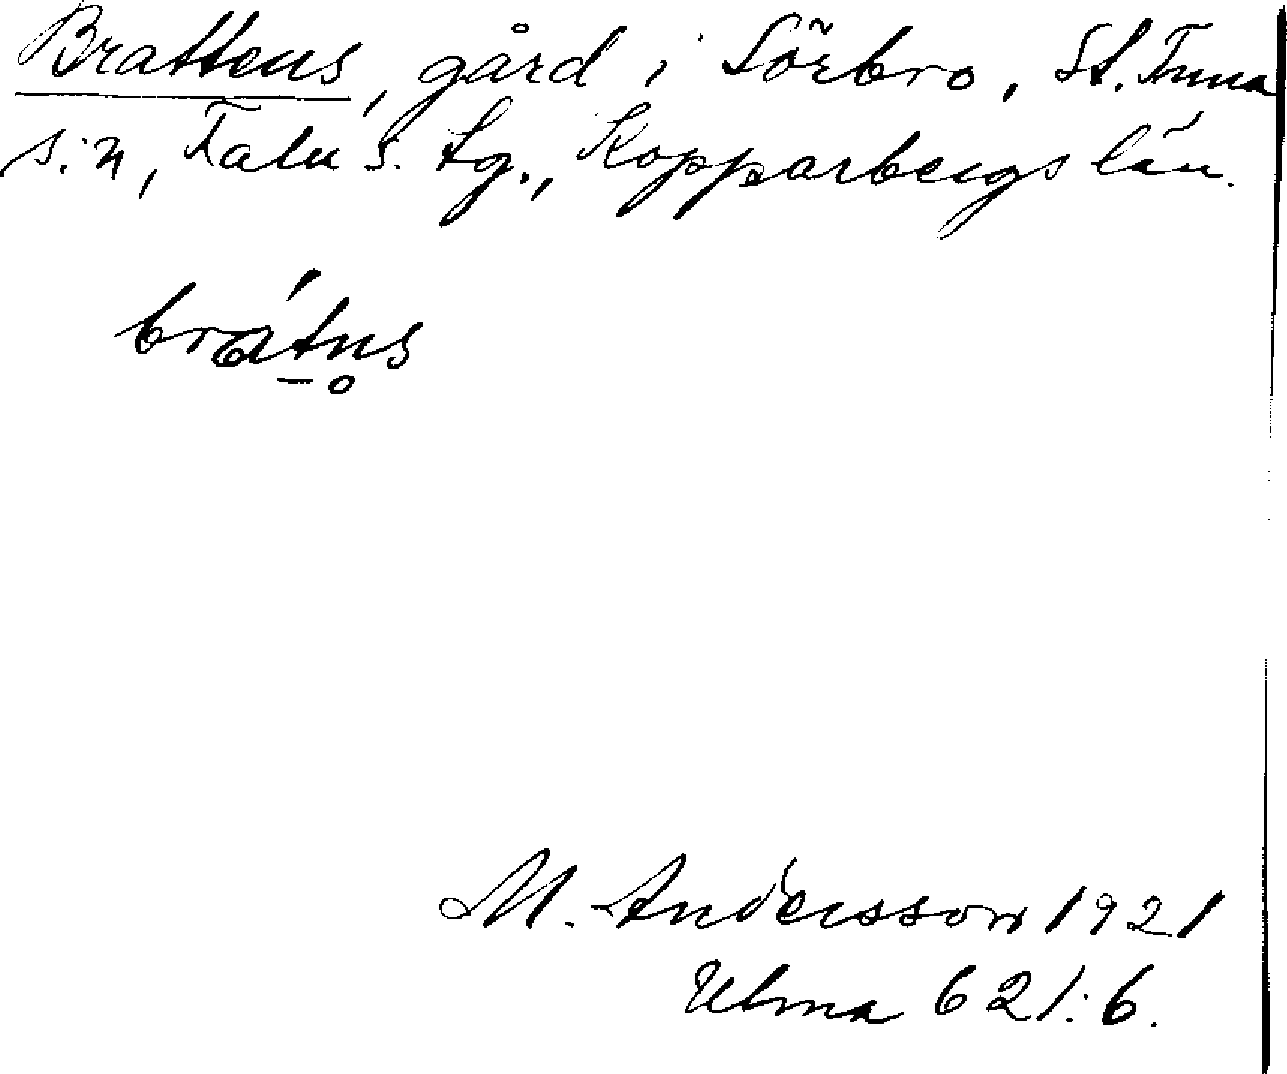 Brattens, gård i Sörbro, St. Tuna
s:n, Falu s. tg., Kopparbergs län.
brátn̥s
M. Andersson 1921
Ulma 621:6.